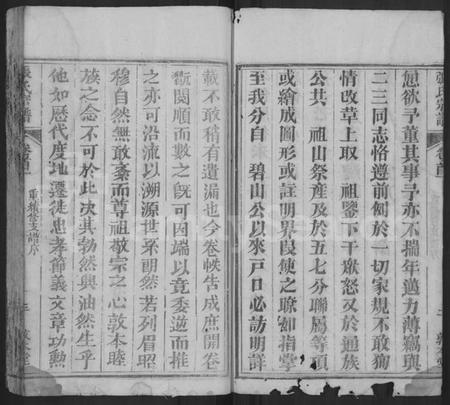 張氏宗譜
卷首
慂欲予董其事予亦不揣年邁力薄竊與
二三同志恪遵前例於一切家規不敢狥
情改草上取 祖鑒下干嫩怒又於通族
公共 祖山祭產及於五七分聯屬等項
或繪成圖形或註明界畏使之瞭如指掌
至我分自 碧山公以來戸口必訪明詳
載不敢稍有遺漏也今卷帙告成庶開卷
繙閱順而數之旣可因端以竟委逆而推
之亦可沿流以溯源世系朗然若列眉昭
穆自然無敢紊而尊祖敬宗之心敦本睦
族之念不可於此决其勃然與油然生乎
他如歷代度地遷徙忠孝節義文章功勲
張氏宗譜
卷首
重續修支譜序